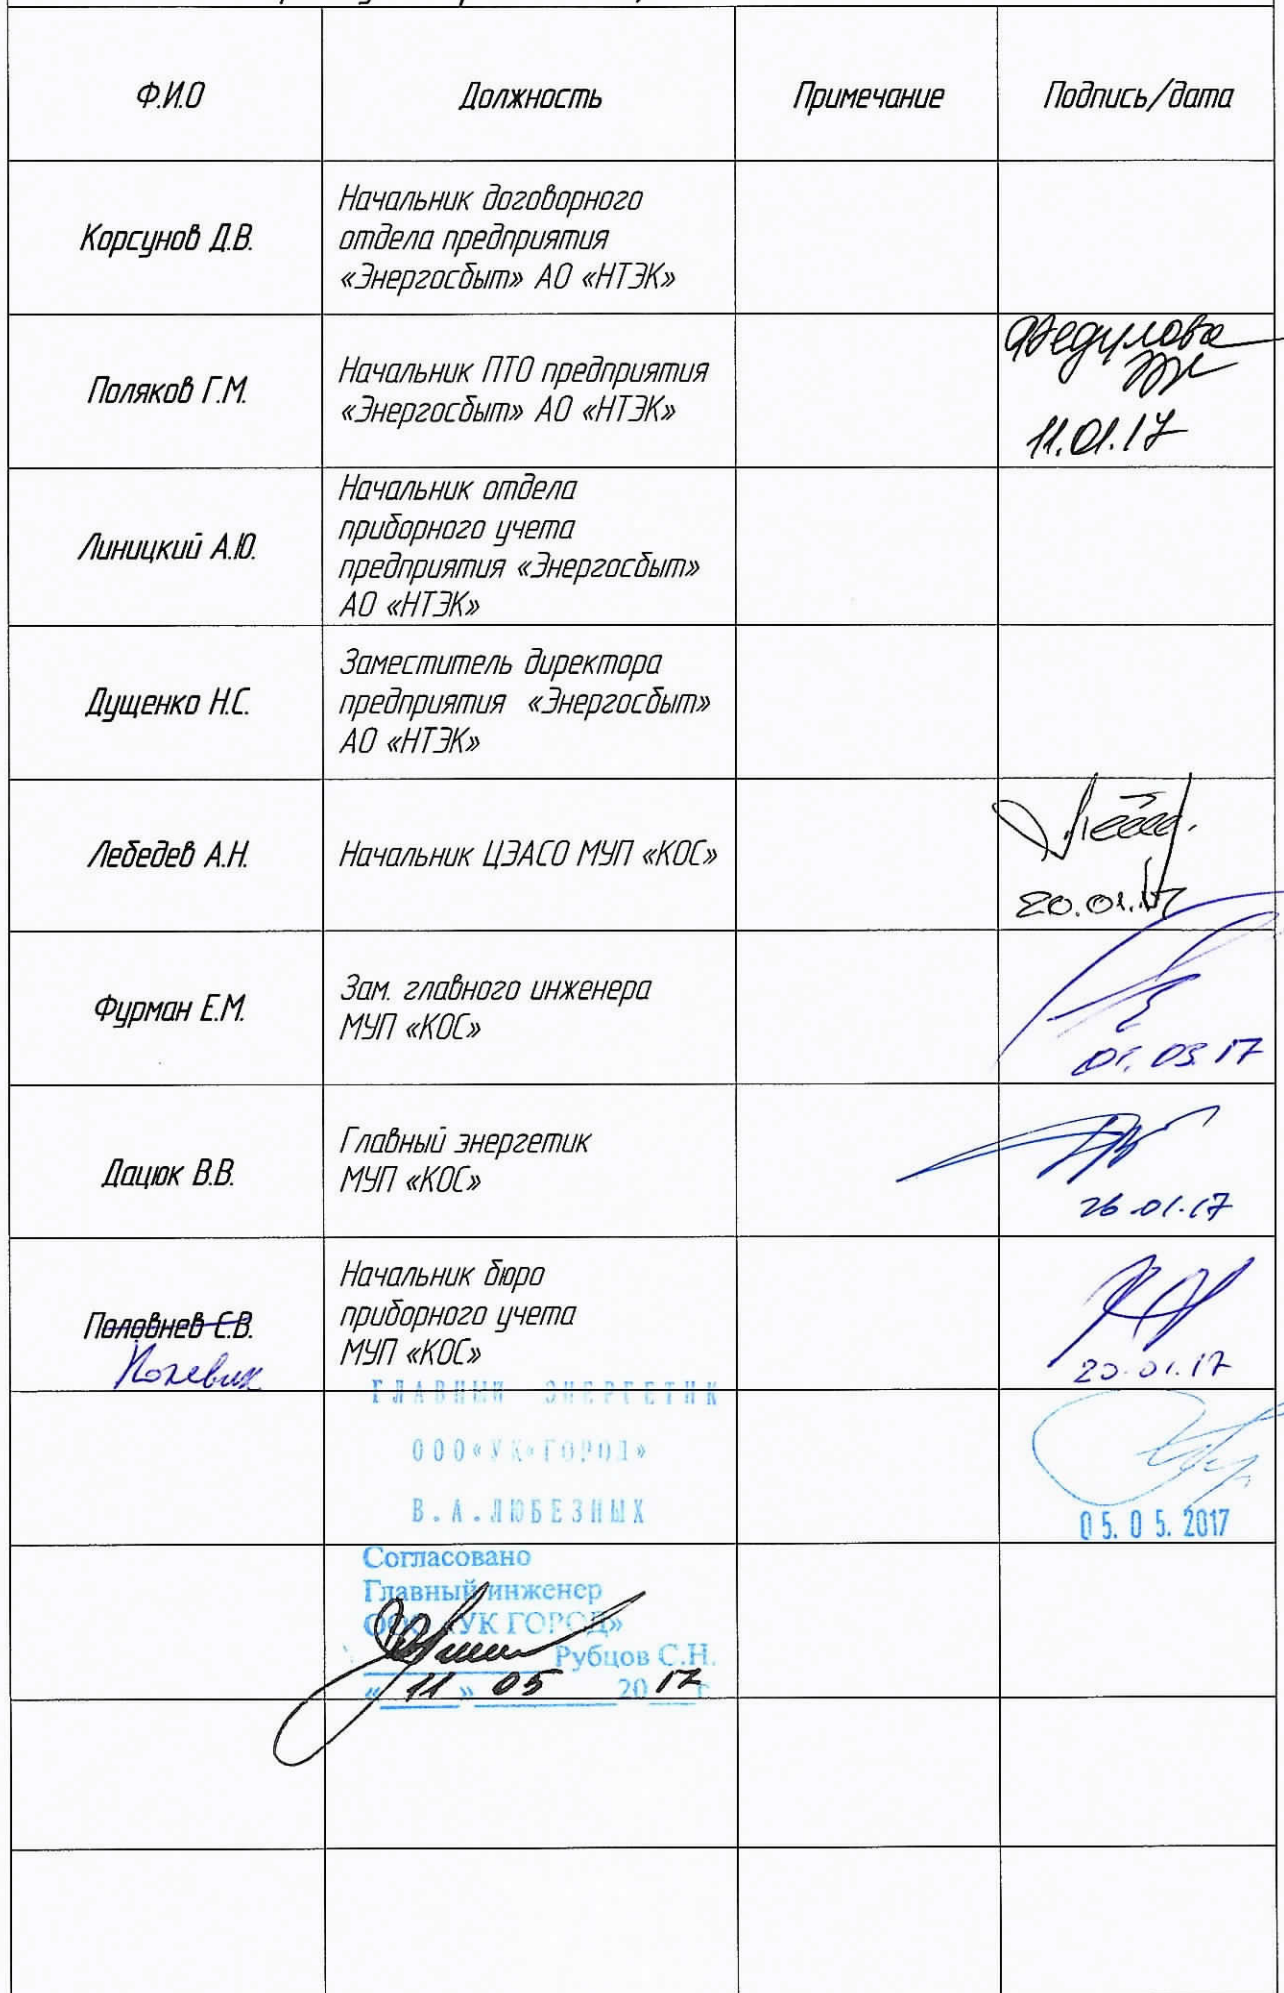 Ф.И.О
Должность
Примечание
Подпись/дата
Корсунов Д.В.
Начальник договорного
отдела предприятия
«Энергосбыт» АО «НТЭК»
Поляков Г.М.
Начальник ПТО предприятия
«Энергосбыт» АО «НТЭК»
Федулова
11.01.17
Линицкий А.Ю.
Начальник отдела
приборного учета
предприятия «Энергосбыт»
АО «НТЭК»
Дущенко Н.С.
Заместитель директора
предприятия «Энергосбыт»
АО «НТЭК»
Лебедев А.Н.
Начальник ЦЭАСО МУП «КОС»
20.01.17
Фурман Е.М.
Зам. главного инженера
МУП «КОС»
01.03.17
Дацюк В.В.
Главный энергетик
МУП «КОС»
26.01.17
Половнев Е.В.
Начальник бюро
приборного учета
МУП «КОС»
20.01.17
ГЛАВНЫЙ ЭНЕРГЕТИК
ООО«УК«ГОРОД»
В.А.ЛЮБЕЗНЫХ
05.05.2017
Согласовано
Главный инженер
ООО «УК ГОРОД»
Рубцов С.Н.
«11» 05 2017г